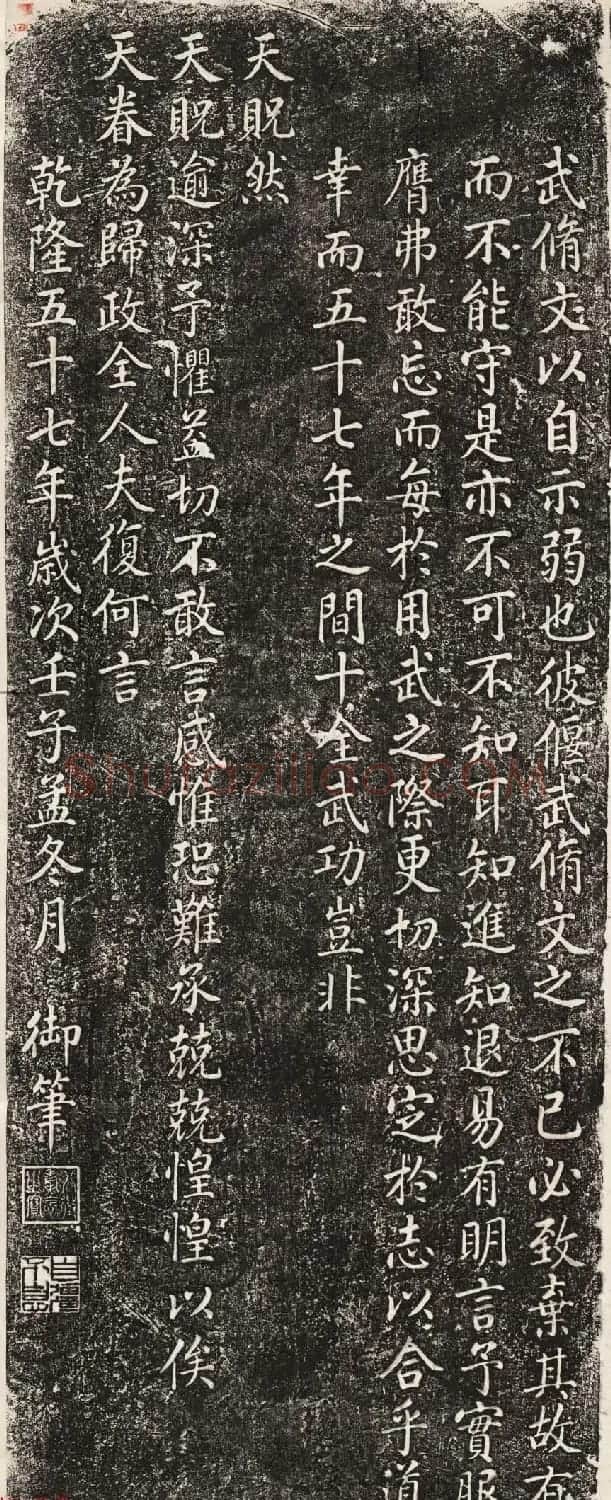 武脩文以自示弱也彼偃武脩文之不已必致棄其故有
而不能守是亦不可不知耳知進知退易有明言予實服
膺弗敢忘而每於用武之際更切深思定於志以合乎道
幸而五十七年之間十全武功豈非
天貺然
天貺逾深予懼益切不敢言感惟恐難承兢兢惶惶以俟
天眷為歸政全人夫復何言
乾隆五十七年歲次壬子孟冬月 御筆
自彊不息
Shufaziliao.COM